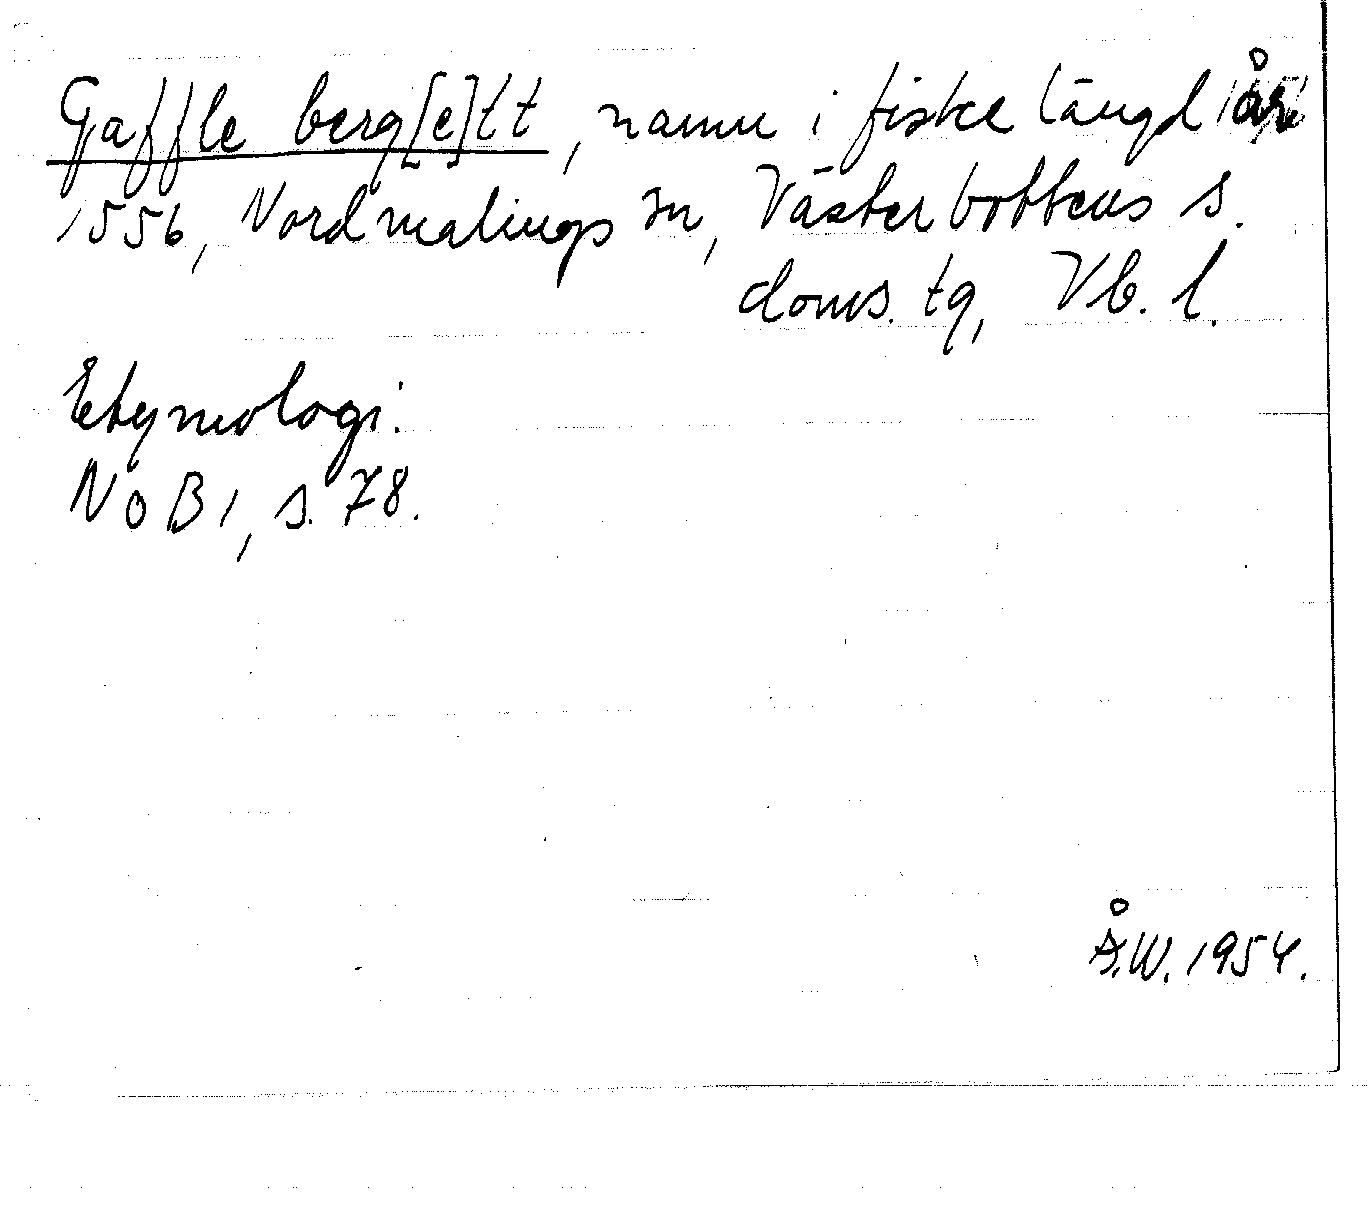 Gaffle berg[e]tt, namn i fiskelängd år
1556, Nordmalings sn, Västerbottens s.
doms. tg, Vb. l.
Etymologi:
NoB 1, s. 78.
Å.W. 1954.